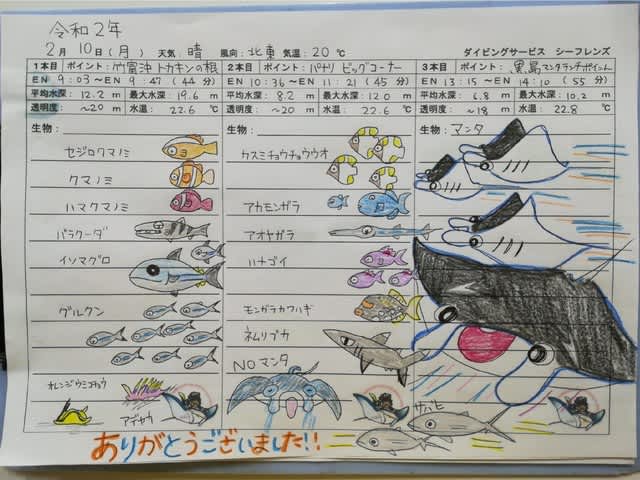 令和2年
2月 10日(月) 天気:晴 風向:北東 気温:20℃ ダイビングサービス シーフレンズ
1本目 ポイント:竹富沖 トカキンの根
EN 9:03 ～ EN 9:47 (44分)
平均水深: 12.2 m 最大水深: 19.6 m
透明度: ～20 m 水温: 22.6 ℃
生物:
セジロクマノミ
クマノミ
ハマクマノミ
バラクーダ
イソマグロ
グルクン
オレンジウミコチョウ
2本目 ポイント:パナリ ビッグコーナー
EN 10:36 ～ EX 11:21 (45分)
平均水深: 8.2 m 最大水深: 12.0 m
透明度: ～20 m 水温: 22.6 ℃
生物:
カスミチョウチョウウオ
アカモンガラ
アオヤガラ
ハナゴイ
モンガラカワハギ
ネムリブカ
NOマンタ
3本目 ポイント:黒島マンタランチポイント
EN 13:15 ～ 14:10 (55分)
平均水深: 6.8 m 最大水深: 10.2 m
透明度: ～18 m 水温: 22.8 ℃
生物: マンタ
ありがとうございました!!